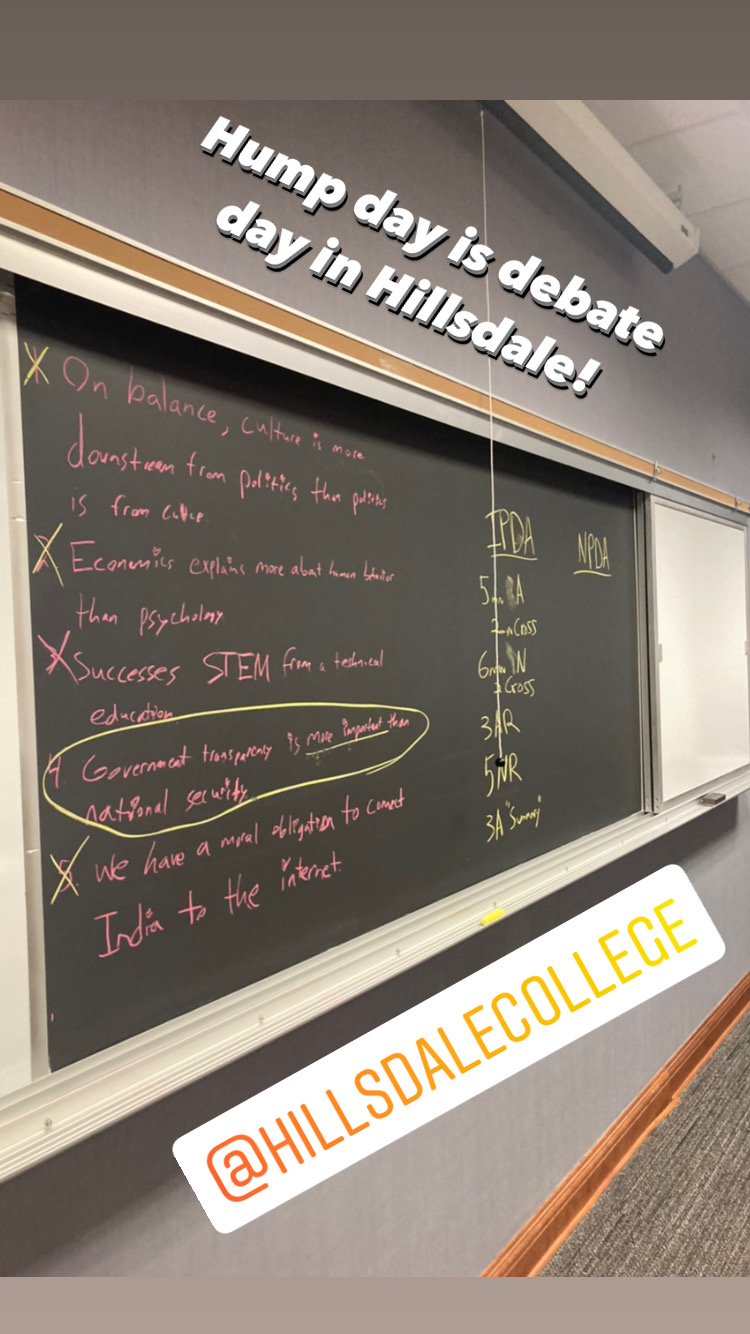 Hump day is debate
day in Hillsdale!
On balance, culture is more
downstream from politics than politics
is from culture
Economics explains more about human behavior
than psychology
Successes STEM from a technical
education
4. Government transparency is more important than
national security
5. We have a moral obligation to connect
India to the internet.
IPDA
5 A
2 Cross
6 N
2 Cross
3AR
5NR
3A "Summy"
NPDA
@HILLSDALECOLLEGE